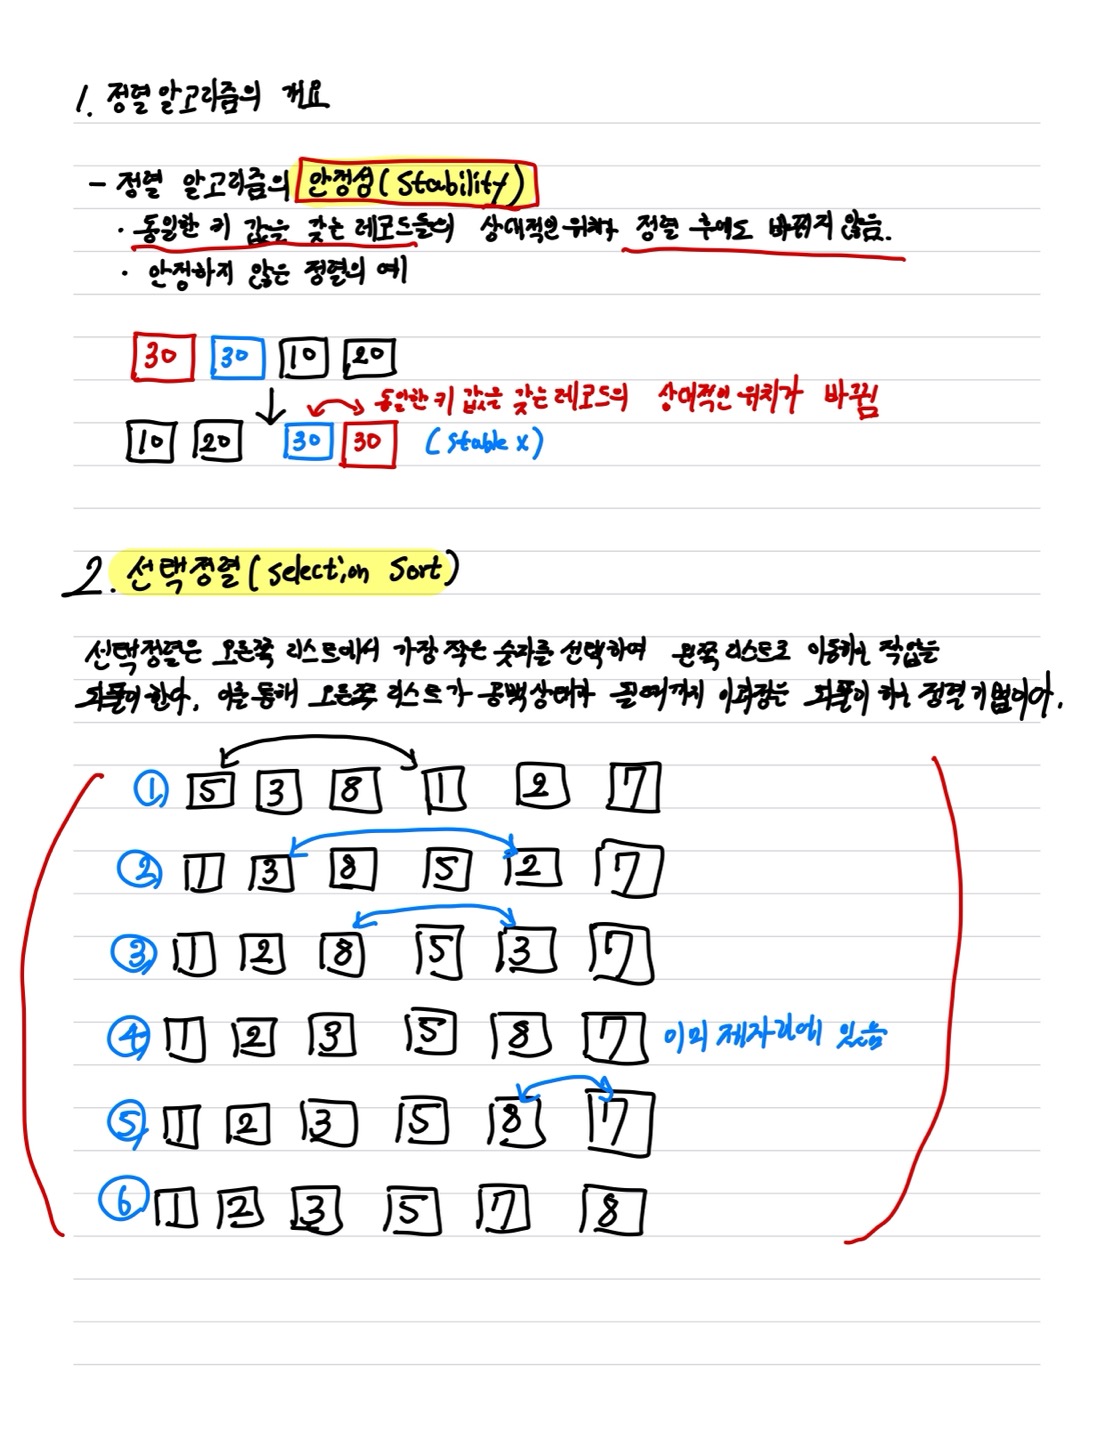 1. 정렬알고리즘의 개요
- 정렬 알고리즘의 안정성(Stability)
· 동일한 키 값을 갖는 레코드들의 상대적인 위치가 정렬 후에도 바뀌지 않음.
· 안정하지 않은 정렬의 예
30 30 10 20
동일한 키 값을 갖는 레코드의 상대적인 위치가 바뀜
10 20 30 30 (stable x)
2. 선택정렬(Selection Sort)
선택정렬은 오른쪽 리스트에서 가장 작은 숫자를 선택하여 왼쪽 리스트로 이동하는 작업을
되풀이한다. 이를 통해 오른쪽 리스트가 공백상태가 될때까지 이과정을 되풀이 하는 정렬기법이다.
① 5 3 8 1 2 7
② 1 3 8 5 2 7
③ 1 2 8 5 3 7
④ 1 2 3 5 8 7 이미 제자리에 있음
⑤ 1 2 3 5 8 7
⑥ 1 2 3 5 7 8